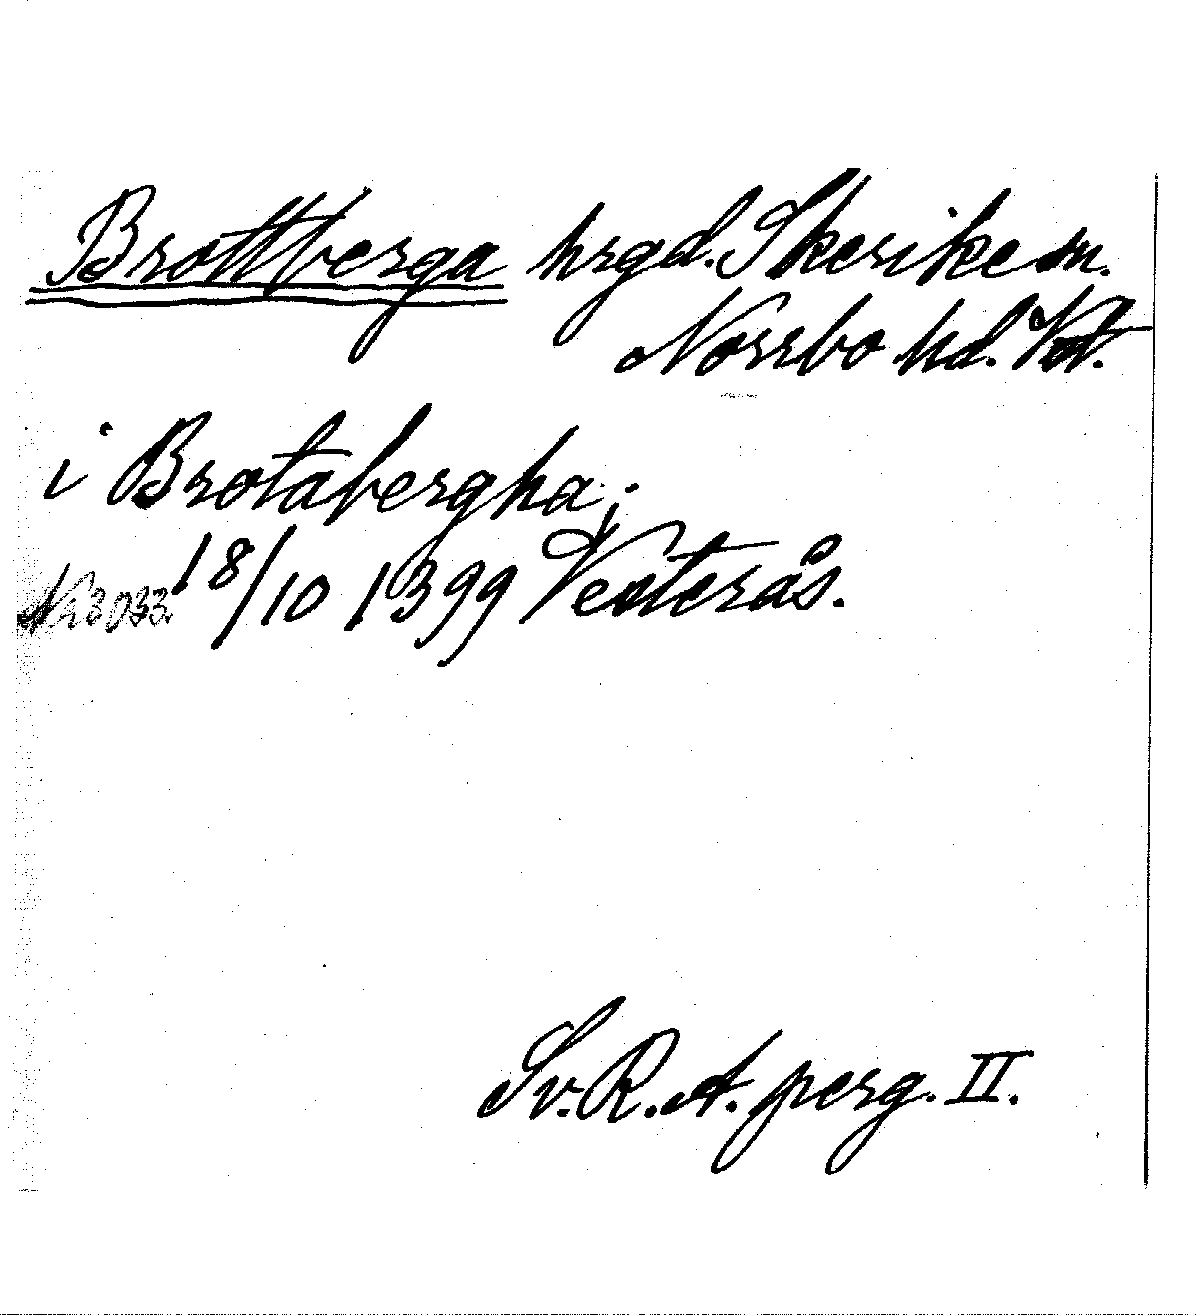 Brottberga hrgd. Skerike sn.
Norrbo hd. Vstl.
i Brotabergha;
Nr 3033. 18/10 1399 Vesterås.
Sv. R. A. perg. II.